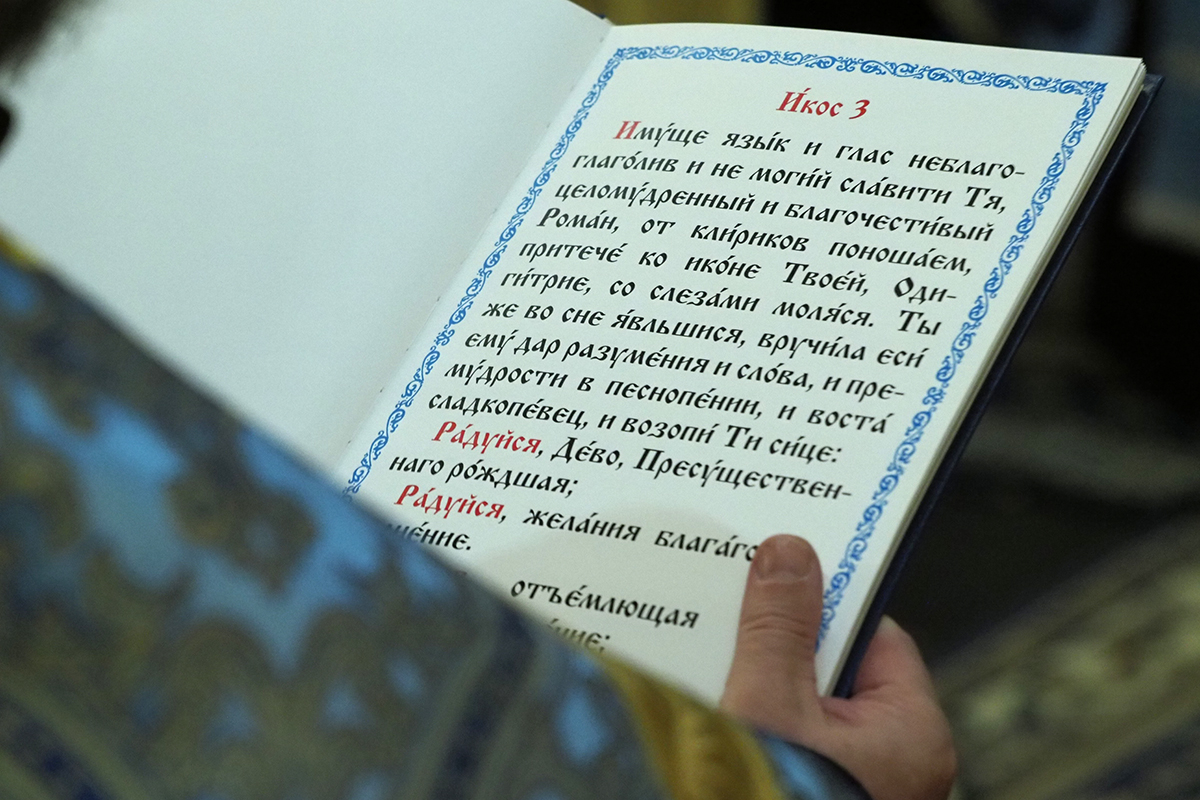 И́кос 3
Иму́ще язы́к и глас неблаго-
глаго́лив и не моги́й сла́вити Тя,
целому́дренный и благочести́вый
Рома́н, от кли́риков поноша́ем,
притече́ ко ико́не Твое́й, Оди-
ги́трие, со слеза́ми моля́ся. Ты
же во сне я́вльшися, вручи́ла еси́
ему́ дар разуме́ния и сло́ва, и пре-
му́дрости в песнопе́нии, и воста́
сладкопе́вец, и возопи́ Ти си́це:
Ра́дуйся, Де́во, Пресу́ществен-
наго ро́ждшая;
Ра́дуйся, жела́ния
отъе́млющая